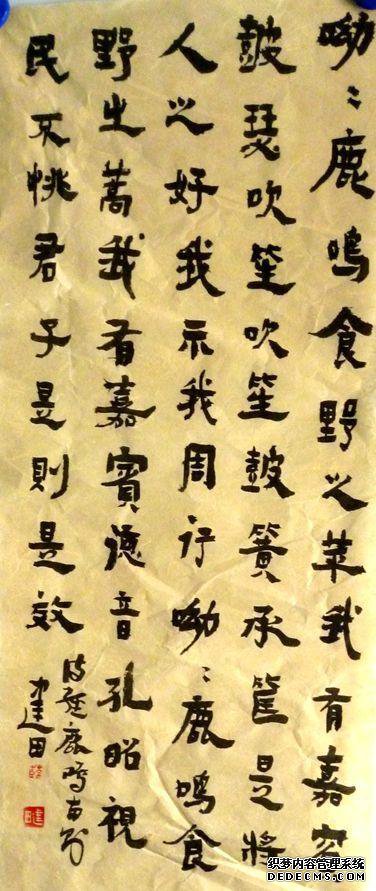 呦〻鹿鳴食野之苹我有嘉宾
鼓瑟吹笙吹笙鼓簧承筐是將
人之好我示我周行呦〻鹿鳴食
野之蒿我有嘉賓德音孔昭視
民不恌君子是則是效
詩經鹿鳴
建田
织梦内容管理系统
DEDECMS.COM